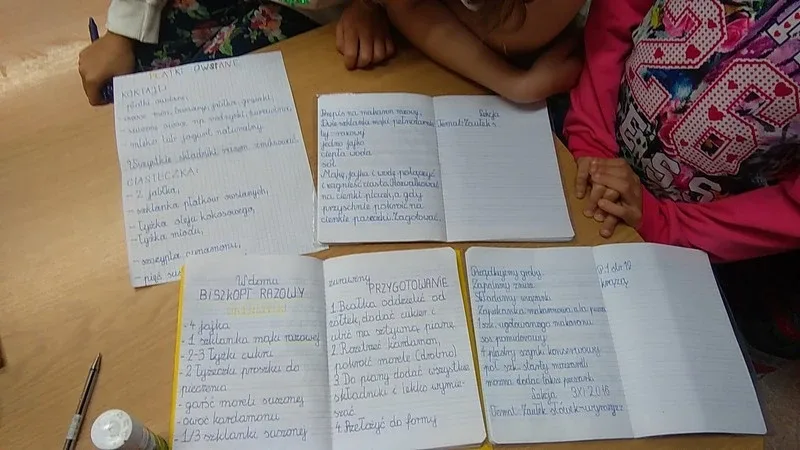 PŁATKI OWSIANE
KOKTAJL:
płatki owsiane,
mleko lub jogurt naturalny
Wszystkie składniki razem zmiksować
CIASTECZKA:
- 2 jabłka,
- szklanka płatków owsianych,
- łyżka oleju kokosowego,
- łyżka miodu,
- szczypta cynamonu,
Przepis na makaron razowy.
Dwie szklanki mąki pełnoziarnis
tej-razowej
jedno jajko
ciepła woda
sól
Mąkę, jajka i wodę połączyć
i zagnieść ciasto. Rozwałkować
na cienki placek, a gdy
przyschnie pokroić na
cienkie paseczki. Zagotować.
Lekcja
Temat: Zaułek
Wetoma
BISZKOPT RAZOWY
- 4 jajka
- 1 szklanka mąki razowej
- 2-3 łyżki cukru
- 2 łyżeczki proszku do
pieczenia
- garść moreli suszonej
- owoc kardamonu
- 1/3 szklanki suszonej
żurawiny
PRZYGOTOWANIE
1. Białka oddzielić od
żółtek, dodać cukier i
ubić na sztywną pianę.
2. Rozetrzeć kardamon,
pokroić morele (drobno)
3. Do piany dodać wszystkie
składniki i lekko wymie-
szać
4. Przełożyć do formy
Porządkujemy groby.
Zapalamy znicze
Składamy wiązanki
Zapiekanka makaronowa ala pizza
sos pomidorowy
4 plastry szynki konserwowej
pół szk. startej mozzareli
można dodać pieczarki
Lekcja 3 XI 2016
Temat: Zaułek słówek-
26